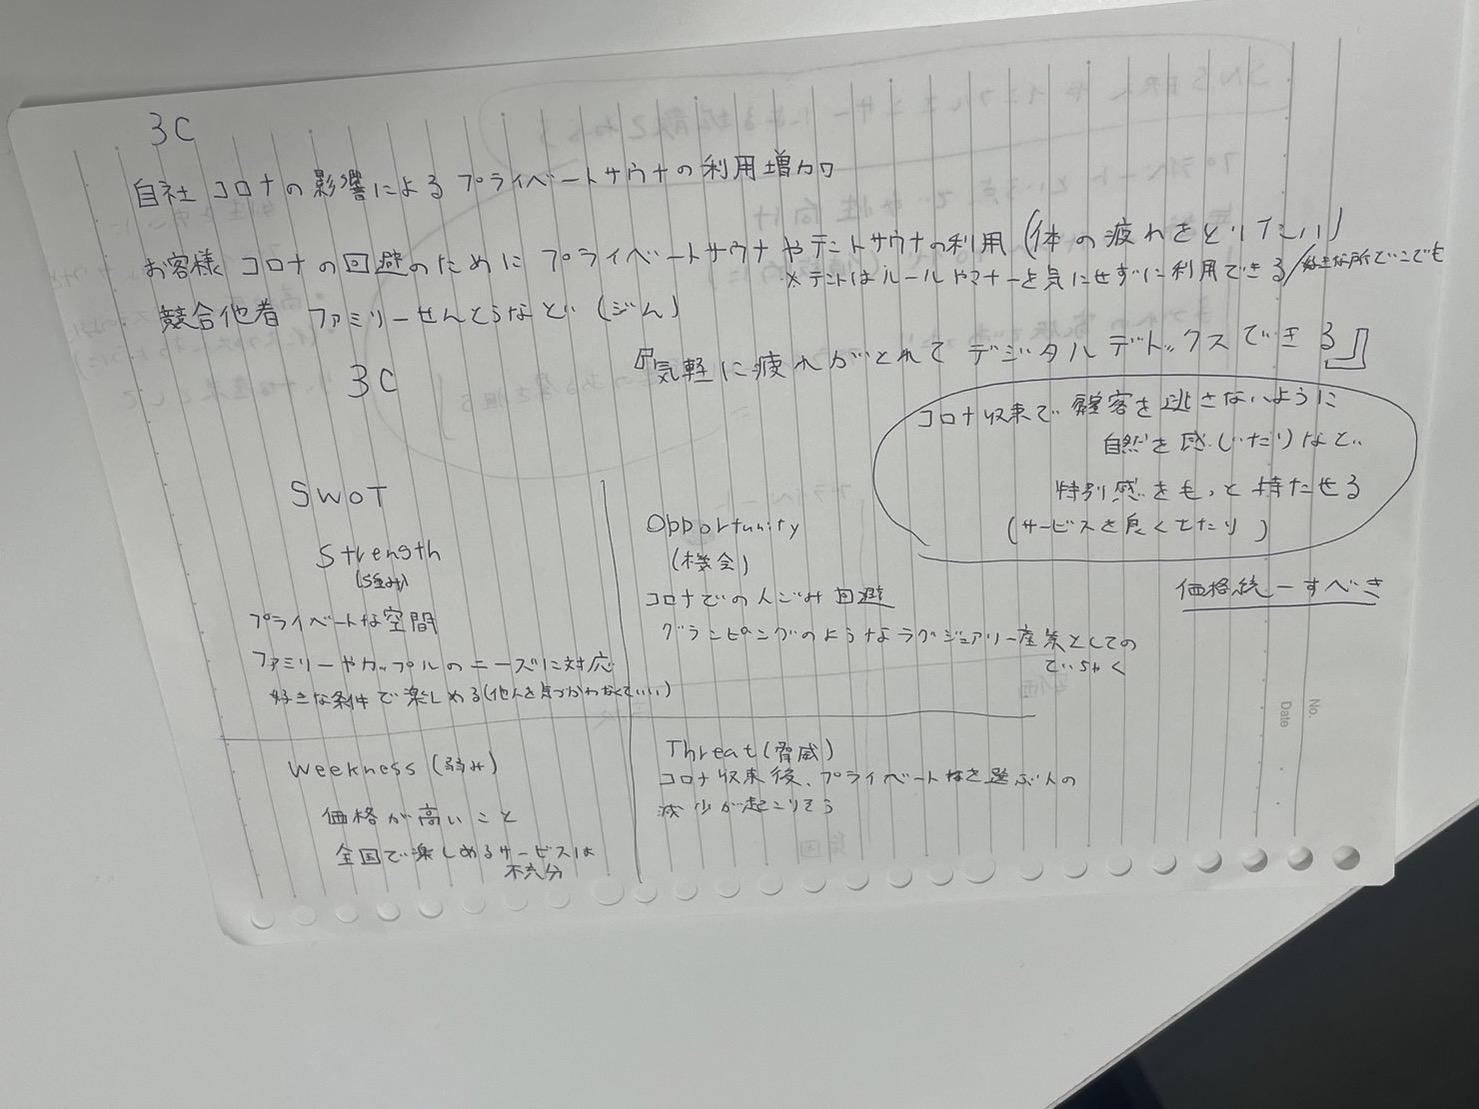 3C
自社 コロナの影響によるプライベートサウナの利用増加
お客様 コロナの回避のためにプライベートサウナやテントサウナの利用(体の疲れをとりたい)
※テントはルールやマナーを気にせずに利用できる/好きな所でどこでも
競合他者 ファミリーせんとうなど(ジム)
『気軽に疲れがとれてデジタルデトックスできる』
3C
コロナ収束で顧客を逃さないように
自然を感じたりなど
特別感をもっと持たせる
(サービスを良くしたり)
価格統一すべき
SWOT
Strength
(強み)
プライベートな空間
ファミリーやカップルのニーズに対応
好きな条件で楽しめる(他人を気づかわなくていい)
Opportunity
(機会)
コロナでの人ごみ回避
グランピングのようなラグジュアリー産業としての
ていちゃく
Weekness(弱み)
価格が高いこと
全国で楽しめるサービスは
不充分
Threat(脅威)
コロナ収束後、プライベートを選ぶ人の
減少が起こりそう
No.
Date